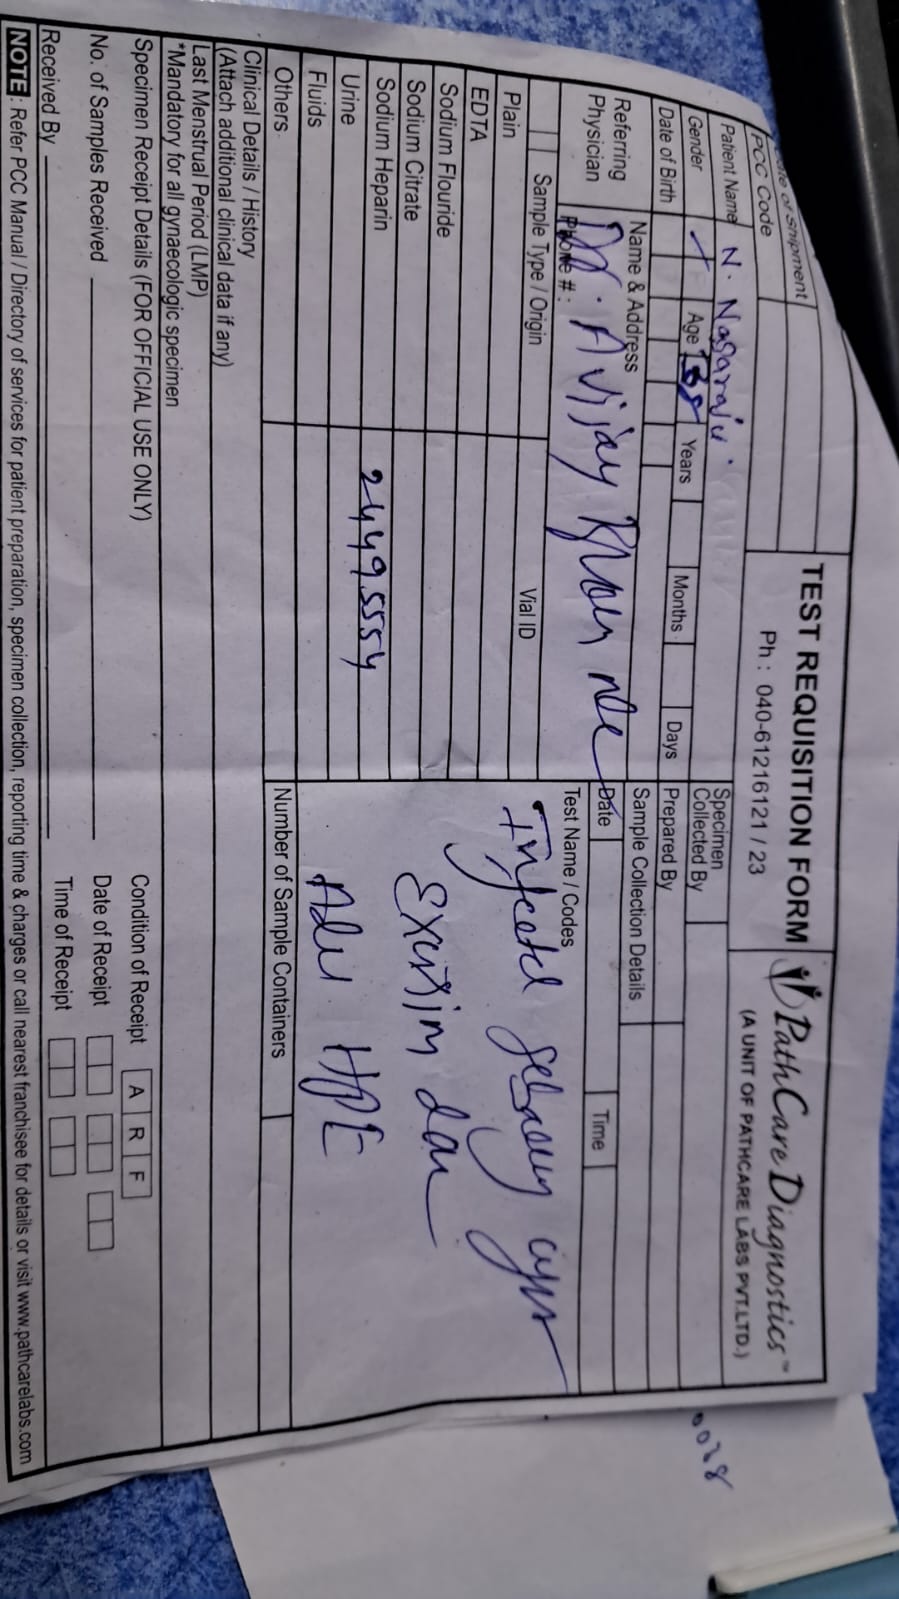 Date of Shipment
PCC Code
TEST REQUISITION FORM
Ph : 040-61216121 / 23
PathCare Diagnostics™
(A UNIT OF PATHCARE LABS PVT.LTD.)
Patient Name N. Nagaraju
Specimen Collected By
Gender Age 38 Years Months Days
Date of Birth
Prepared By
Referring Physician
Name & Address
Dr. A Vijay
Phone # :
Sample Collection Details
Date Time
Sample Type / Origin Vial ID
Test Name / Codes
Plain
EDTA
Sodium Flouride
Sodium Citrate
Sodium Heparin 24495554
Urine
Fluids
Others
Infected
HPE
Number of Sample Containers
Clinical Details / History
(Attach additional clinical data if any)
Last Menstrual Period (LMP)
*Mandatory for all gynaecologic specimen
Specimen Receipt Details (FOR OFFICIAL USE ONLY)
Condition of Receipt A R F
No. of Samples Received
Date of Receipt
Received By
Time of Receipt
NOTE : Refer PCC Manual / Directory of services for patient preparation, specimen collection, reporting time & charges or call nearest franchisee for details or visit www.pathcarelabs.com